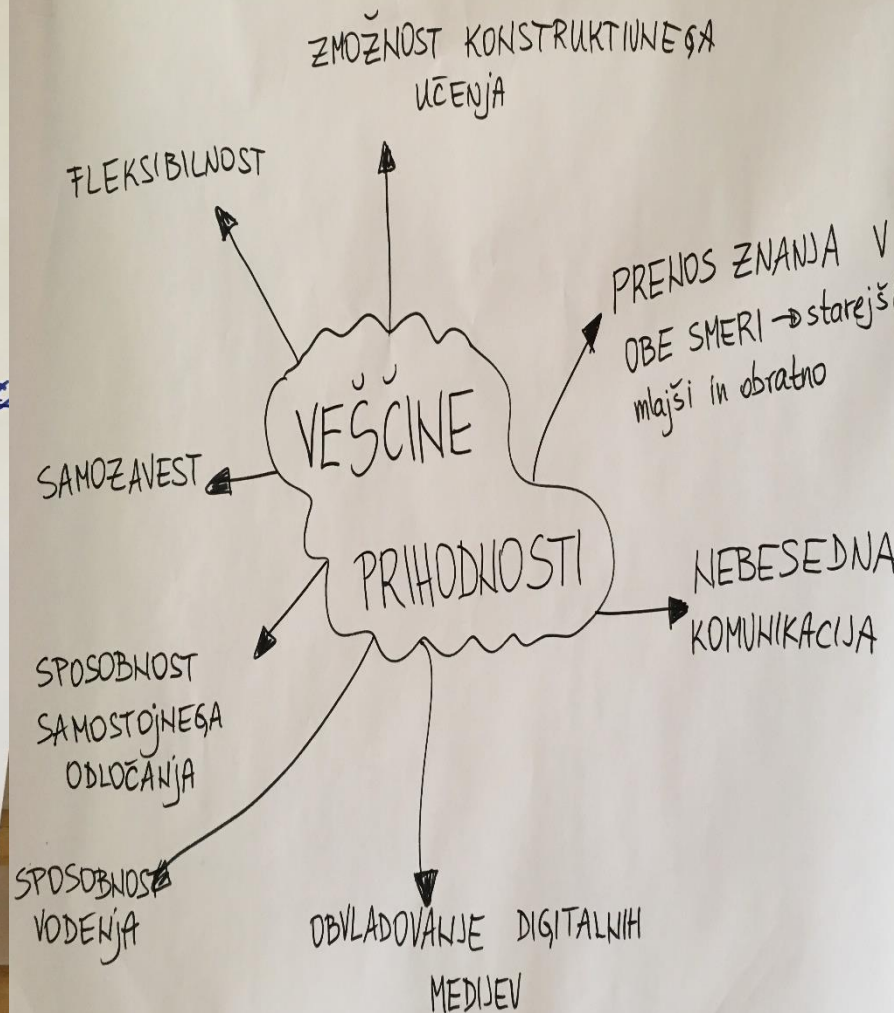 ZMOŽNOST KONSTRUKTIVNEGA
UČENJA
FLEKSIBILNOST
PRENOS ZNANJA V
OBE SMERI → starejš
mlajši in obratno
VEŠČINE
PRIHODNOSTI
SAMOZAVEST
NEBESEDNA
KOMUNIKACIJA
SPOSOBNOST
SAMOSTOJNEGA
ODLOČANJA
SPOSOBNOST
VODENJA
OBVLADOVANJE DIGITALNIH
MEDIJEV